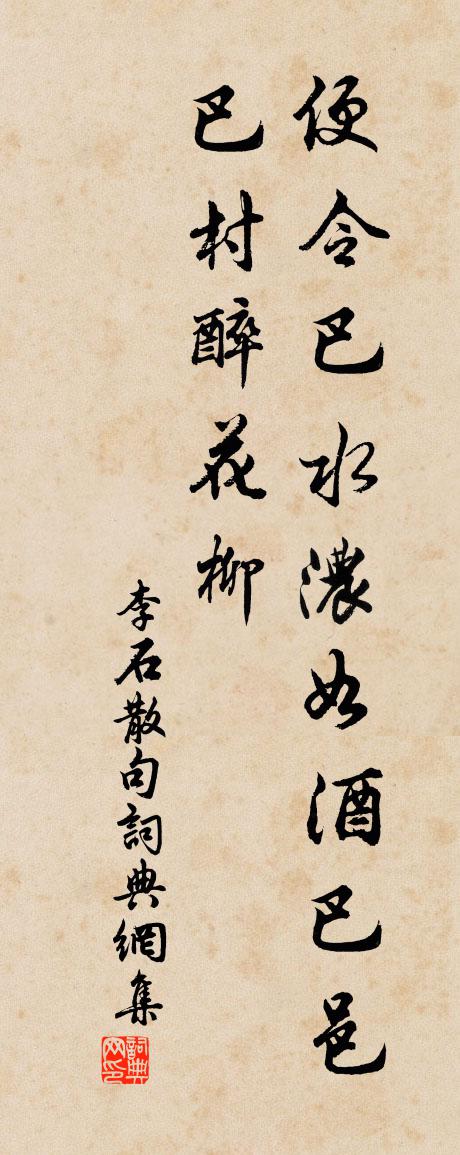 便令巴水濃如酒巴邑
巴村醉花柳
李石散句詞典網集
詞典网印